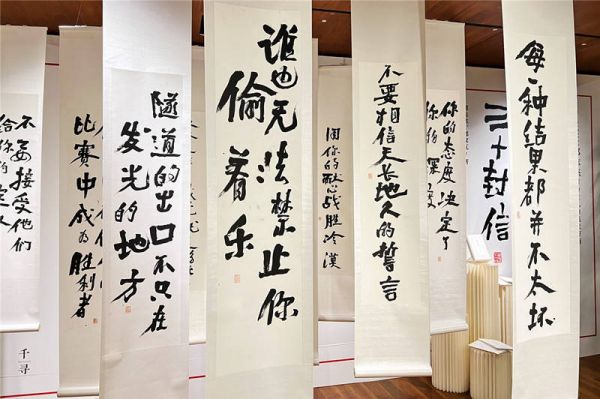 每一种结果都并不太坏
二十封信
你的态度决定了
不要相信天长地久的誓言
战胜冷漠
谁也无法禁止你
偷着乐
隧道的出口不只在
发光的地方
比赛中成为胜利者
不要接受他们
给你的定
千寻